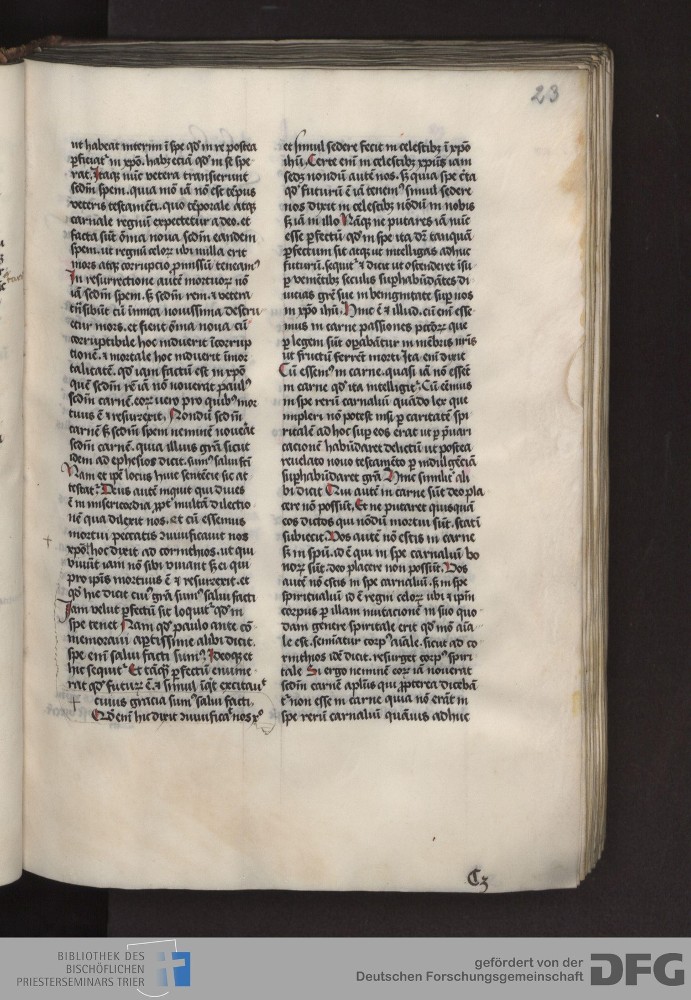 23
ut habeat interim ī spe qd̄ in re postea
ꝑficiat᷑ in xp̄o. habꝫ etiā qd̄ in se spe
rat. Itaqꝫ nūc vetera transierunt
sedm̄ spem. quia mō iā nō est tēpus
veteris testamēti. quo tēporale atqꝫ
carnale regnū expectetur a deo. et
facta sūt ōmia noua sedm̄ eandem
spem. ut regnū celoꝝ ubi nulla erit
mors atqꝫ corrupcio ꝓmissū teneamꝰ
In resurrectione autē mortuoꝝ nō
iā sedm̄ spem. sꝫ sedm̄ rem. ⁊ vetera
trāsibūt cū īmica nouissima destru
etur mors. et fient ōmia noua cū
corruptibile hoc induerit īcorrup
tionē. ⁊ mortale hoc induerit īmor
talitatē. qd̄ iam factū est in xp̄o
quē sedm̄ rē iā nō nouerat paulꝰ
sedm̄ carnē. coꝝ vero pro quibꝰ mor
tuus ē ⁊ resurexit. Nondū sedm̄
carnē sꝫ sedm̄ spem neminē nouēat
sedm̄ carnē. quia illius grā̄ sicut
idem ad ephesios dicit. sumꝰ salui fcī
Nam et ip̄e locus huic sentēcie sic at
testat᷑. Deus autē inquit qui diues
ē in misericordia ꝓpt᷑ multā dilectio
nē qua dilexit nos. et cū essemus
mortui peccatis ꝯuiuificauit nos
xpō hoc dixit ad corinthios. ut qui
viuūt iam nō sibi viuant sꝫ ei qui
pro ip̄is mortuus ē ⁊ resurrexit. et
qd̄ hic dicit cuiꝰ grā sumꝰ salui facti
Iam velut ꝑfectū sit loquit᷑ qd̄ in
spe tenet Nam qd̄ paulo ante cō
memoraui aptissime alibi dicit.
spe em̄ salui facti sumꝰ. Ideoqꝫ et
hic sequit᷑. Et tāqꝫ ꝑfectū enume
rat qd̄ futuꝝ ē. ⁊ simul īqt excitauꝰ
cuius gracia sumꝰ salui facti.
Qd̄ em̄ hic dixit ꝯuiuificaꝰ nos xo
et simul sedere fecit in celestibꝫ ī xpo
ihū. Certe em̄ in celestibꝫ xpūs iam
sedꝫ nondū autē nos. sꝫ quia spe c̄ta
qd̄ futurū ē iā tenemꝰ simul sedere
nos dixit in celestibꝫ nōdū in nobis
sꝫ iā in illo Nāqꝫ ne putares iā nūc
esse ꝑfectū qd̄ in spe ita dr̄ tanquā
ꝑfectum sit atqꝫ ut intelligas adhuc
futurū. sequit᷑ ⁊ dicit ut ostenderet īsu
ꝑ veniētibꝫ seculis suꝑhabūdātes di
uicias grē sue in benignitate suꝑ nos
in xpo ihū. Hinc ē ⁊ illud. cū em̄ esse
mus in carne passiones pctōꝝ que
ꝑ legem sūt oꝑabātur in mēbris nr̄is
ut fructū ferrēt morti. Ita em̄ dixit
Cū essemꝰ in carne. quasi iā nō essēt
in carne qd̄ ita intelligit᷑. Cū eēmus
in spe rerū carnaliū quādo lex que
impleri nō potest nisi ꝑ caritatē spi
ritalē ad hoc suꝑ eos erat ut ꝑ p̄uari
cacionē habūdaret delictū ut postea
reuelato nouo testamēto ꝑ indulgēciā
suꝑhabūdaret grā Hinc similit᷑ ali
bi dicit Qui autē in carne sūt deo pla
cere nō possūt. Et ne putaret quisquā
eos dictos qui nōdū mortui sūt. statī
subiecit. Vos autē nō estis in carne
sꝫ in spū. id ē qui in spe carnaliū bo
noꝝ sūt. deo placere non possūt. Vos
autē nō estis in spe carnaliū. sꝫ in spe
spiritualiū id ē regni celoꝝ ubi ⁊ ip̄m
corpus ꝑ illam mutacionē in suo quo
dam genere spiritale erit qd̄ mō aīa
le est. seminatur corpꝰ aīale. sicut ad co
rinthios idē dicit. resurget corpꝰ spiri
tale Si ergo neminē coꝝ iā nouerat
sedm̄ carnē aplūs qui ꝓpterea dicebā
t᷑ non esse in carne quia nō erāt in
spe rerū carnaliū quāuis adhuc
C3
BIBLIOTHEK DES
BISCHÖFLICHEN
PRIESTERSEMINARS TRIER
gefördert von der
Deutschen Forschungsgemeinschaft
DFG